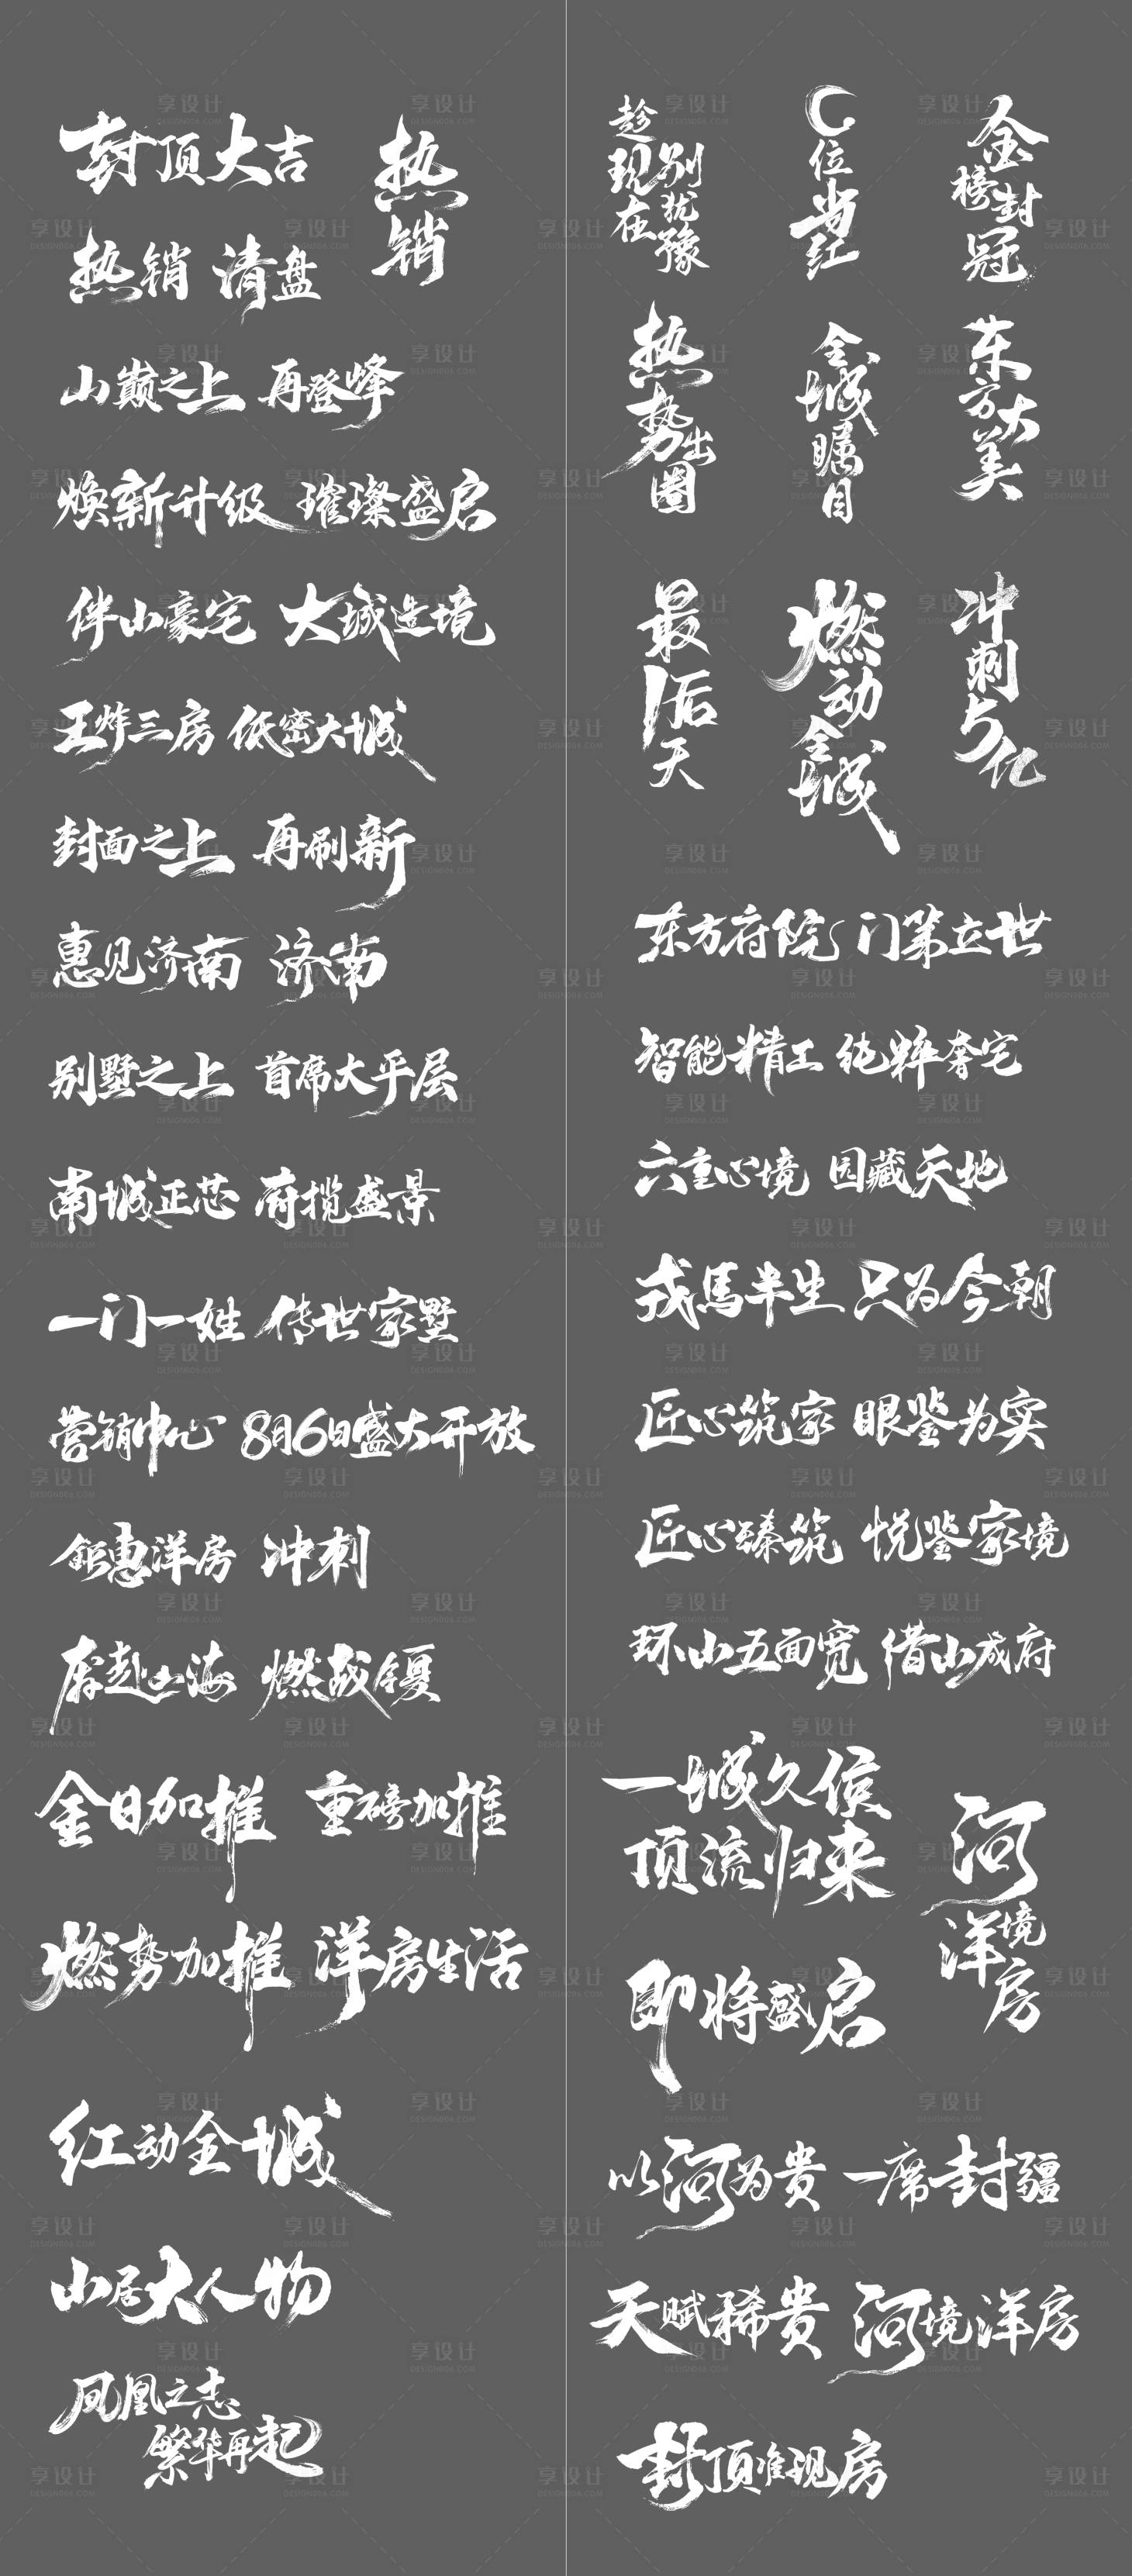 封顶大吉
热销
热销 清盘
山巅之上 再登峰
焕新升级 璀璨盛启
伴山豪宅 大城造境
王炸三房 低密大城
封面之上 再刷新
惠见济南 济南
别墅之上 首席大平层
南城正芯 府揽盛景
一门一姓 传世家墅
营销中心 8月6日盛大开放
钜惠洋房 冲刺
齐赴山海 燃战今夏
金日加推 重磅加推
燃势加推 洋房生活
红动全城
山居大人物
凤凰之志
繁华再起
趁现在
别犹豫
C位当红
金榜封冠
热势出圈
全城瞩目
东方大美
最后1天
燃动全城
冲刺5亿
东方府院 门第立世
智能精工 纯粹奢宅
六重心境 园藏天地
戎馬半生 只为今朝
匠心筑家 眼鉴为实
匠心臻筑 悦鉴家境
环山五面宽 借山成府
一城久候
顶流归来
河境洋房
即将盛启
以河为贵 一席封疆
天赋稀贵 河境洋房
封顶准现房
享设计
DESIGN006.COM